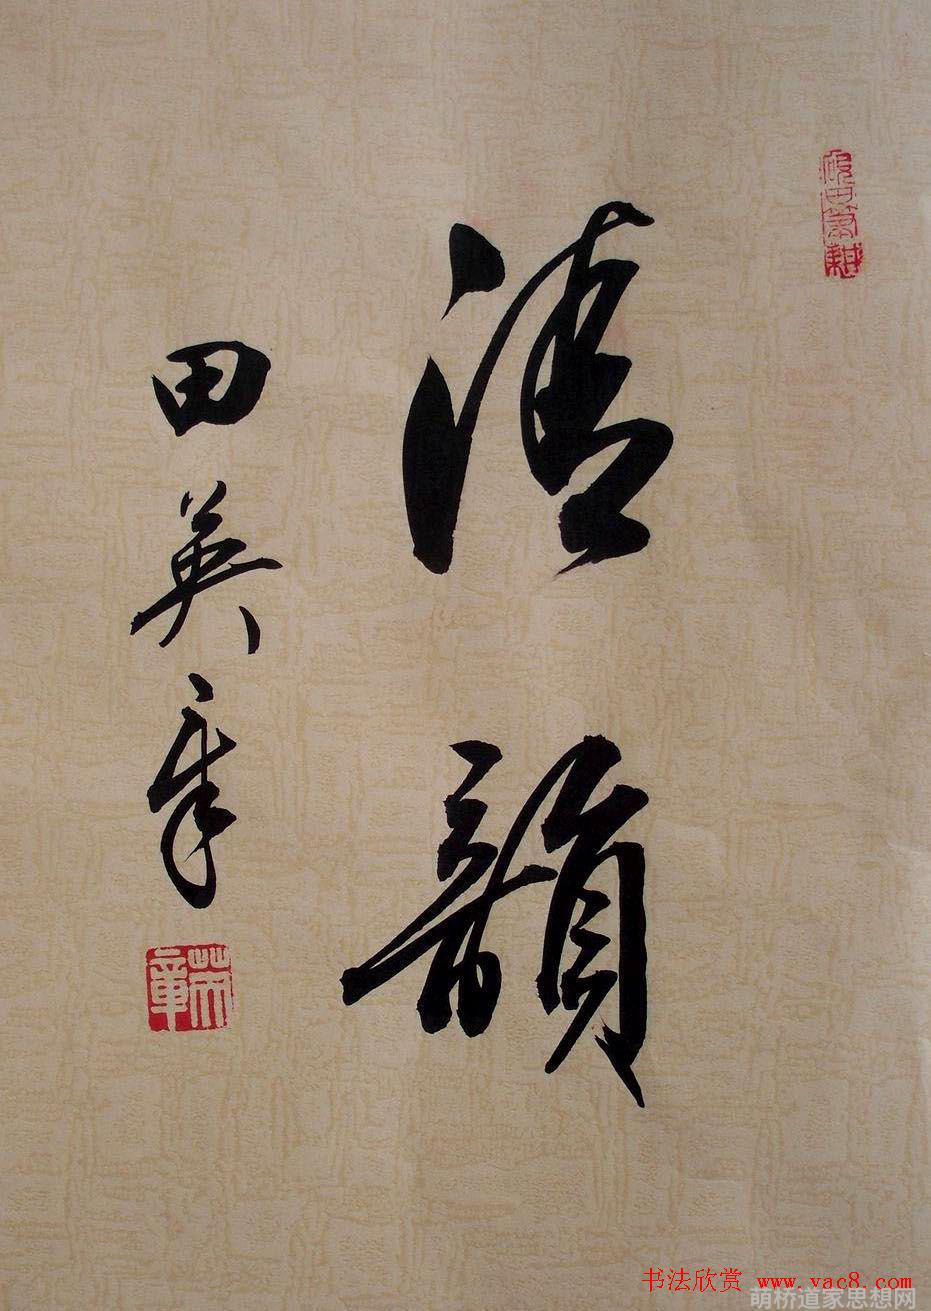 清韻
田英章
书法欣赏 www.yac8.com
萌桥道家思想网